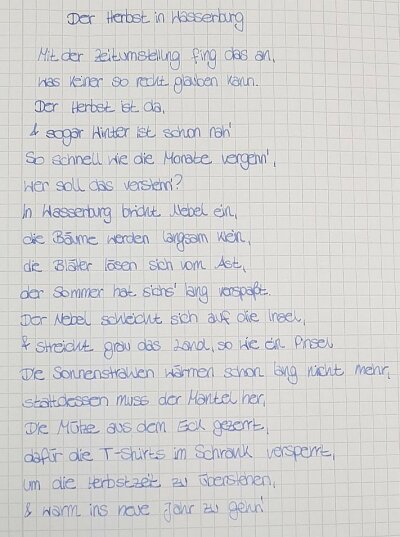 Der Herbst in Wasserburg
Mit der Zeitumstellung fing das an,
was keiner so recht glauben kann.
Der Herbst ist da,
& sogar Winter ist schon nah'
So schnell wie die Monate vergehn',
wer soll das verstehn'?
In Wasserburg bricht Nebel ein,
die Bäume werden langsam klein,
die Blätter lösen sich vom Ast,
der Sommer hat sichs' lang verspaßt.
Der Nebel schleicht sich auf die Insel,
& streicht grau das Land, so wie ein Pinsel
Die Sonnenstrahlen wärmen schon lang nicht mehr,
stattdessen muss der Mantel her,
Die Mütze aus dem Eck gezerrt,
dafür die T-Shirts im Schrank versperrt,
um die Herbstzeit zu überstehen,
& warm ins neue Jahr zu gehn'